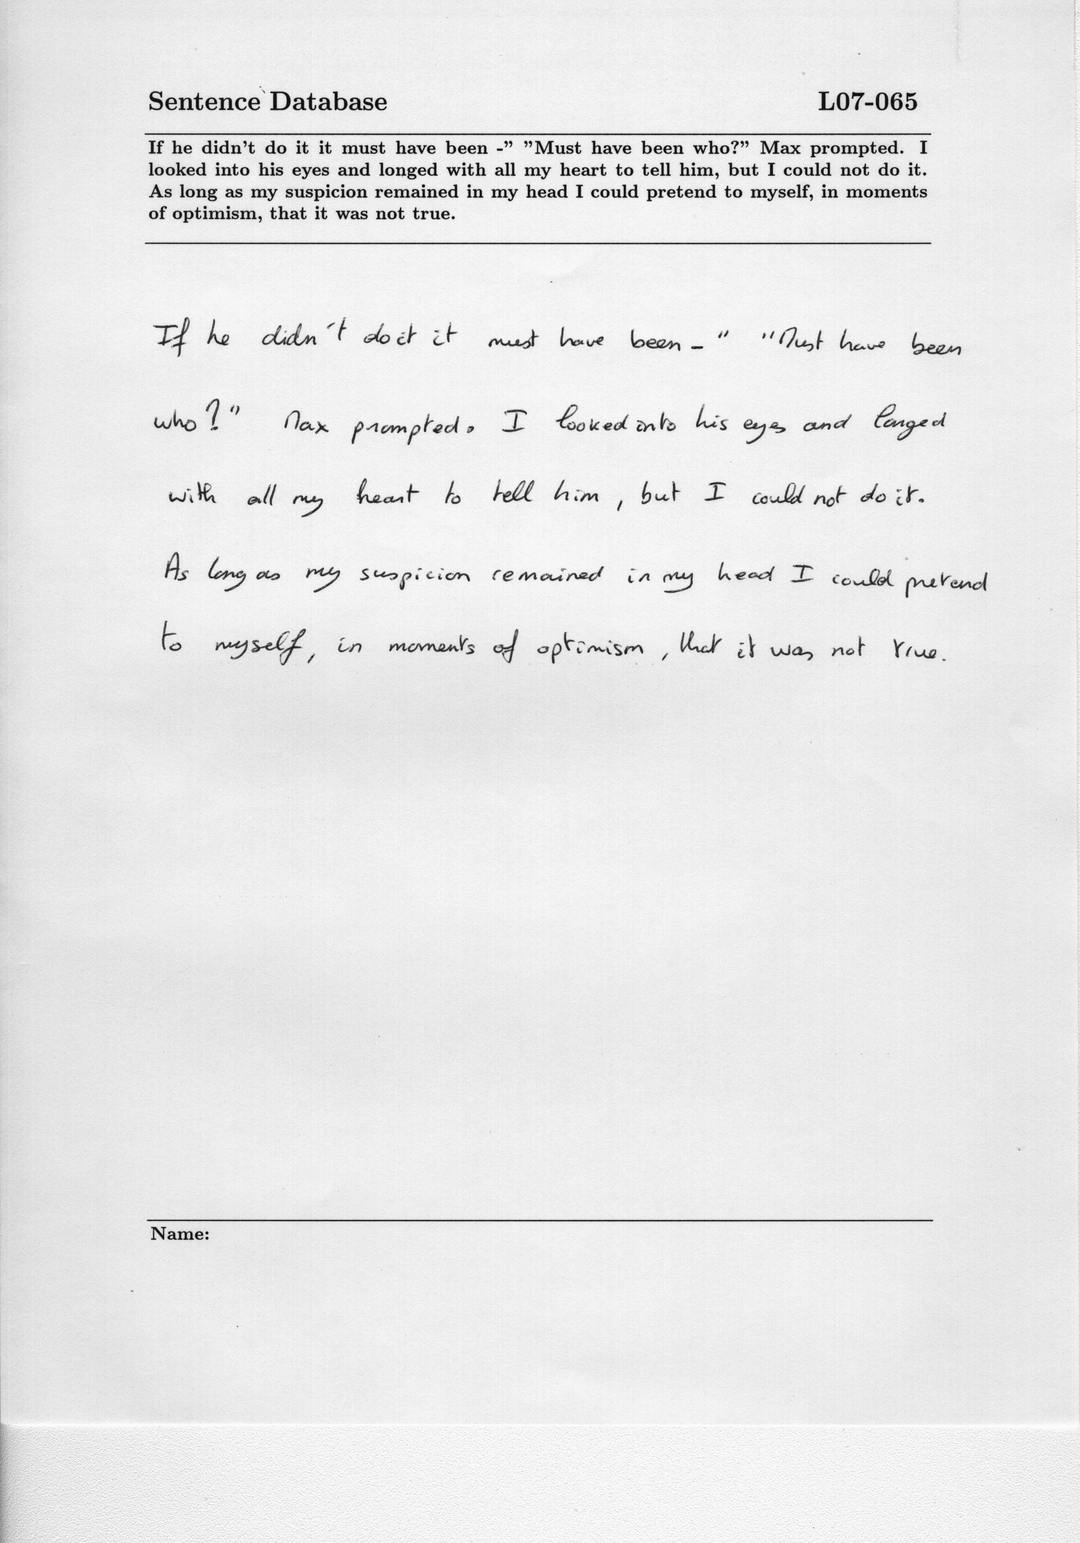 Sentence Database L07-065
If he didn't do it it must have been -" "Must have been who?" Max prompted. I
looked into his eyes and longed with all my heart to tell him, but I could not do it.
As long as my suspicion remained in my head I could pretend to myself, in moments
of optimism, that it was not true.
If he didn't do it it must have been - " "Must have been
who?" Max prompted. I looked into his eyes and longed
with all my heart to tell him, but I could not do it.
As long as my suspicion remained in my head I could pretend
to myself, in moments of optimism, that it was not true.
Name: